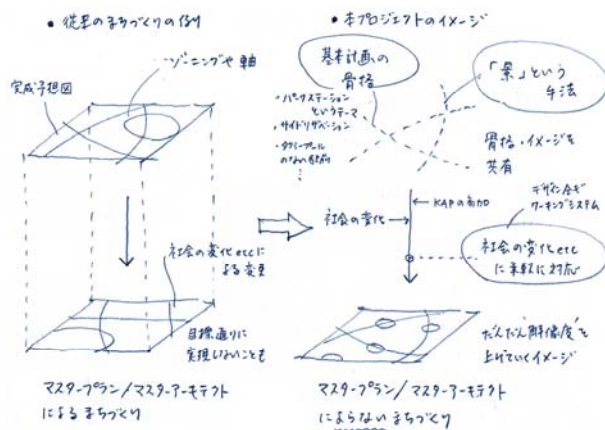 • 従来のまちづくりの例
ゾーニングや軸
完成予想図
社会の変化etc
による変更
目標通りに
実現しないことも
マスタープラン/マスターアーキテクト
によるまちづくり
• 本プロジェクトのイメージ
基本計画の
骨格
・パークステーション
というテーマ
・サイドリザベーション
・タクシープール
のない駅前
⋮
「景」という
手法
骨格・イメージを
共有
社会の変化
KAPの参加
デザイン会議
ワーキングシステム
社会の変化etc
に柔軟に対応
だんだん“解像度”を
上げていくイメージ
マスタープラン/マスターアーキテクト
によらないまちづくり